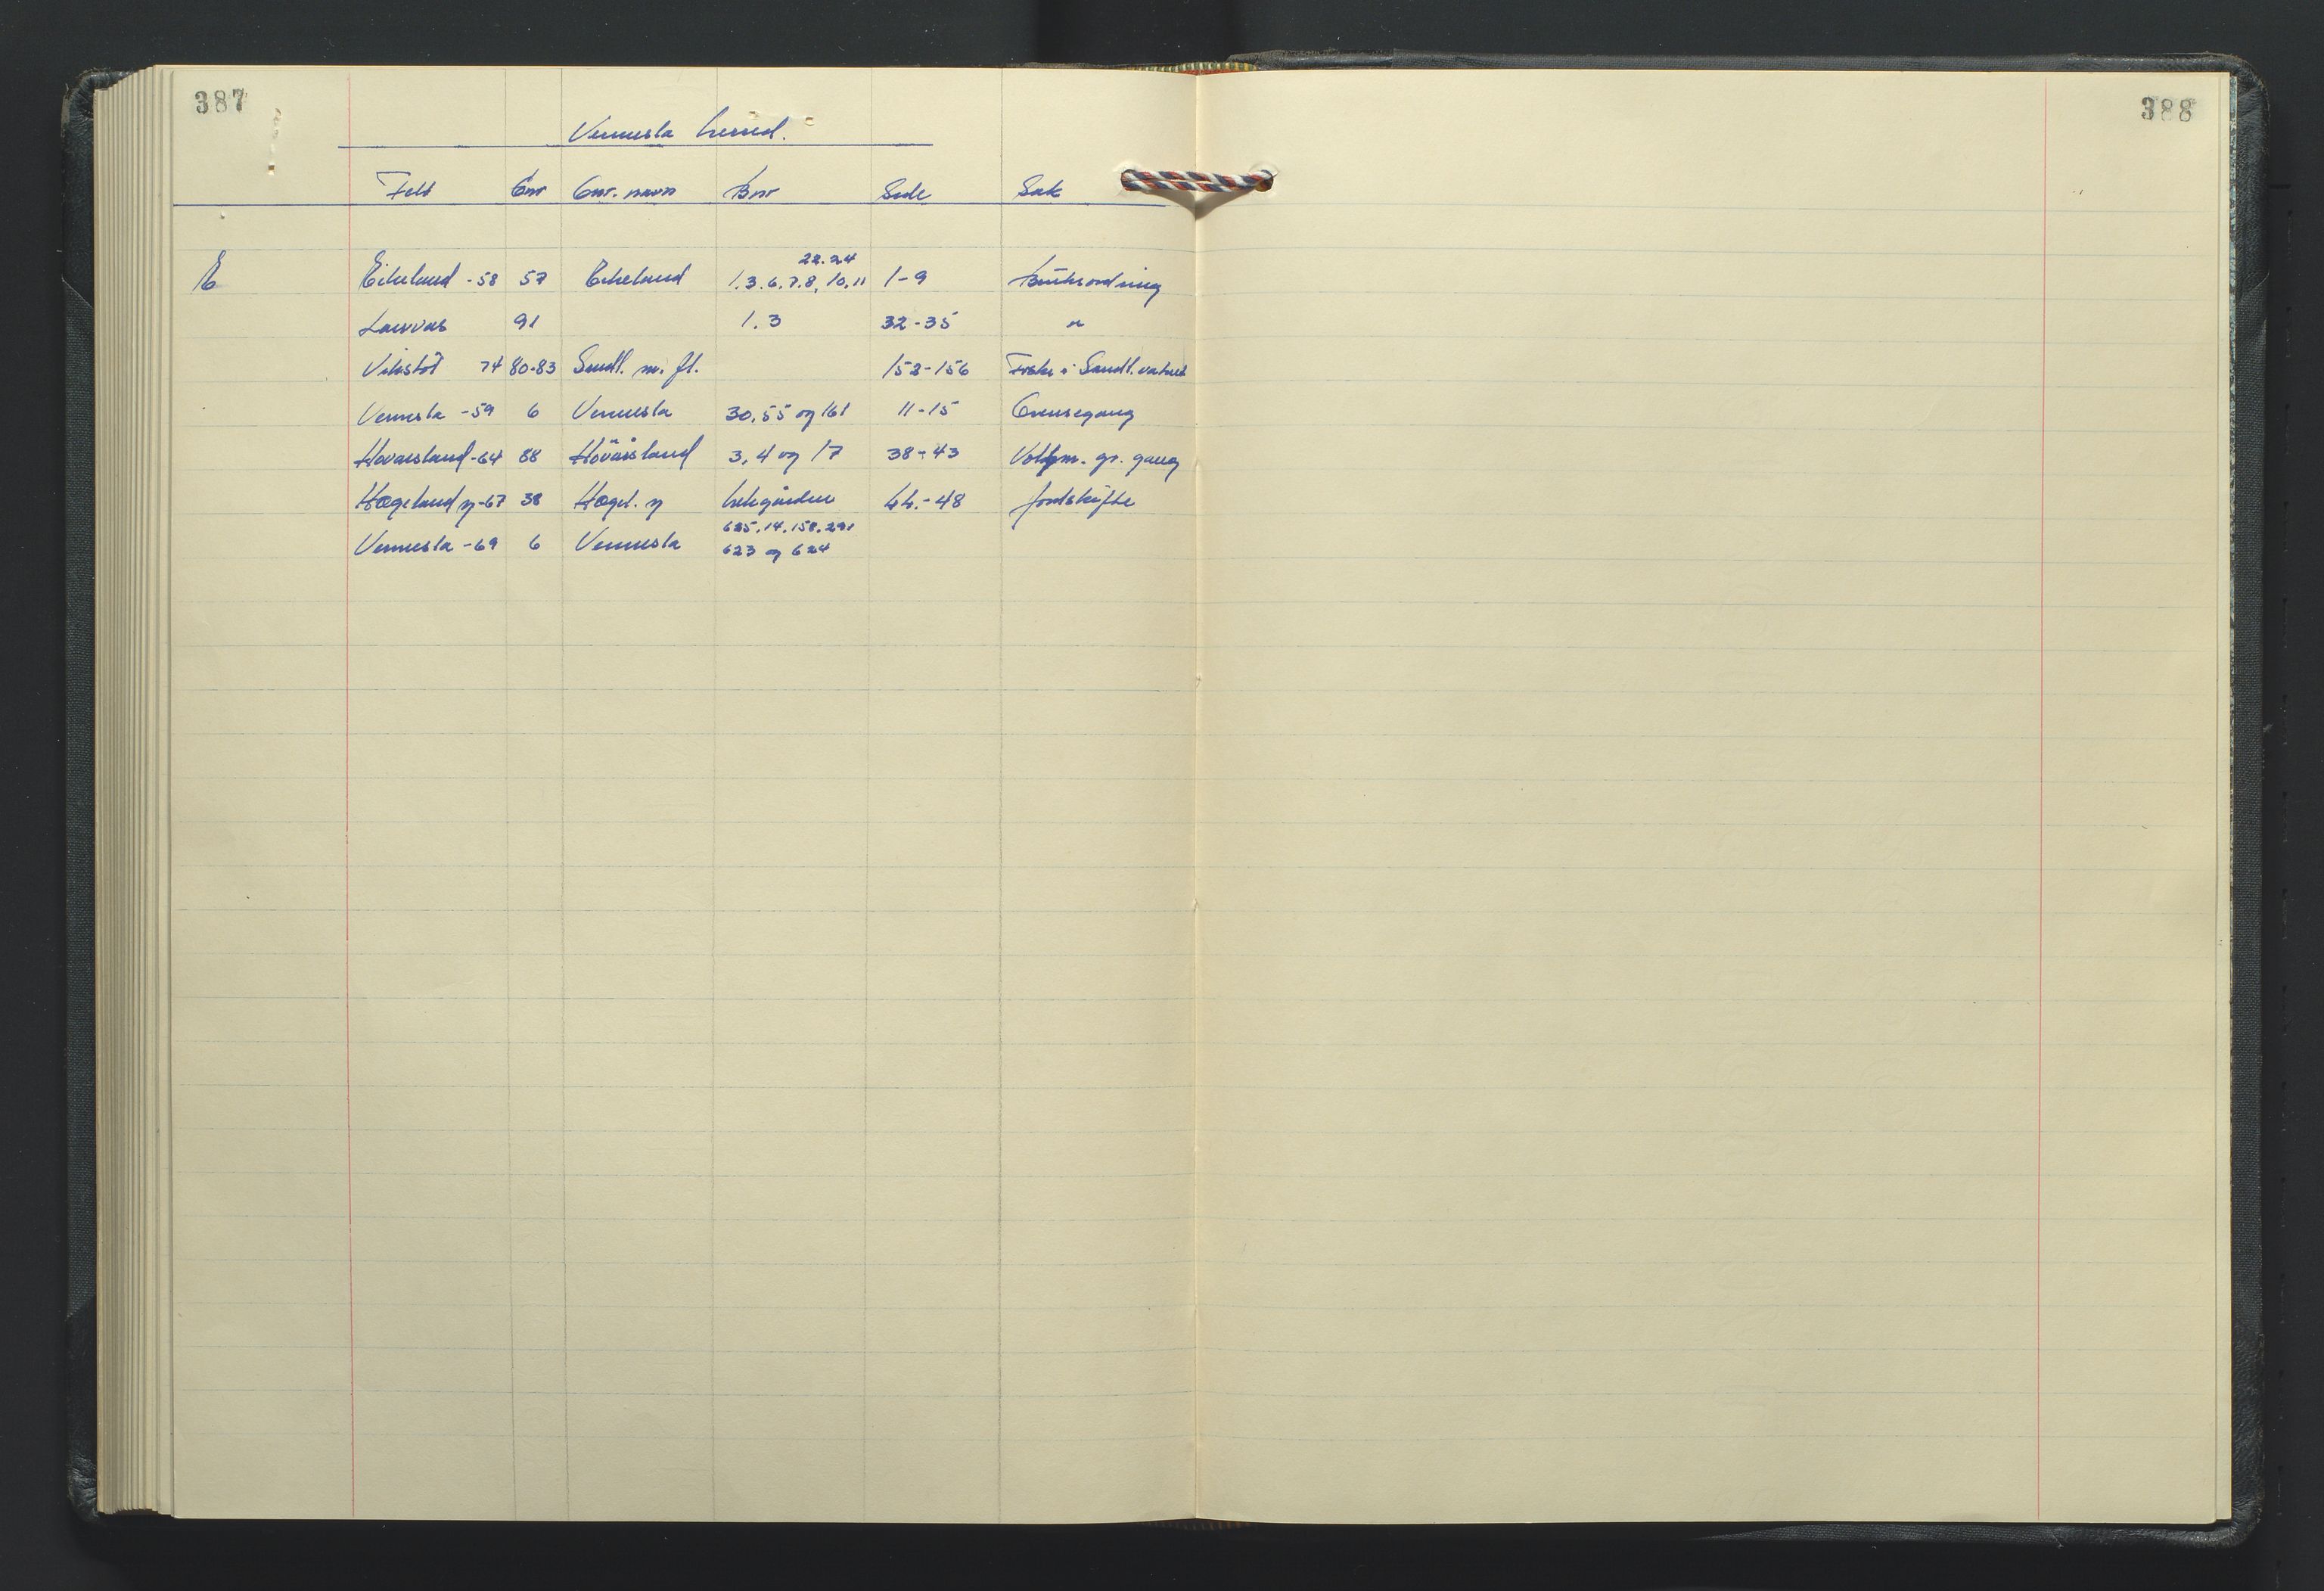 387
388
Vennesla herred.
Felt Gnr Gnr. navn Bnr Side Sak
E Eikeland -58 57 Eikeland 1.3.6.7.8, 10.11 22.24 1-9 Bruksordning
Lauvås 91 1.3 32-35 "
Vikstöl 74 80-83 Sandl. m. fl. 152-156 Fiske i Sandl.vatnet
Vennesla -59 6 Vennesla 30.55 og 161 11-15 Grensegang
Hovarsland -64 88 Hövårsland 3, 4 og 17 38-43 gr. gang
Hægeland y -67 38 Hægel. y hele gården 44.-48 Jordskifte
Vennesla -69 6 Vennesla 625, 14, 158, 291
623 og 624